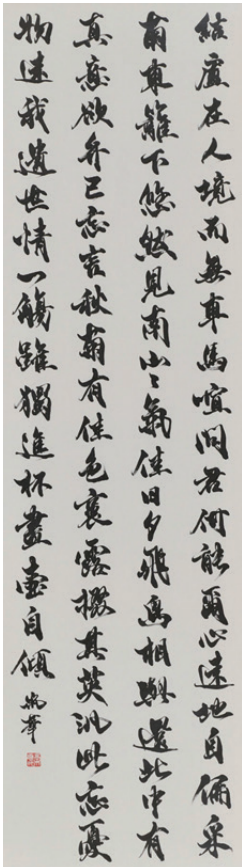 結廬在人境而無車馬喧問君何能爾心遠地自偏采
菊東籬下悠然見南山々氣佳日夕飛鳥相與還此中有
真意欲弁已忘言秋菊有佳色裛露掇其英汎此忘憂
物遠我遺世情一觴雖獨進杯盡壺自傾